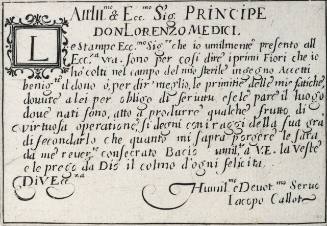 All Ill.mo & Ecc.mo Sig. PRINCIPE
DON LORENZO MEDICI.
Le Stampe Ecc.mo Sig.re che io umilmente presento all
Ecc.za vra. sono per cosi dire i primi Fiori che io
hò colti nel campo del mio sterile ingegno Accetti
benig.te il dono ò, per dir meglio, le primitie delle mie fatiche,
douute a lei per obligo di seruitu, e se le pare il luogo
doue nati sono, atto à produrre qualche frutto di
virtuosa operatione, si degni con i raggi della sua gra
di secondarlo che quanto mi saprà porgere le sarà
da me reuer.te consecrato Bacio umil.te à V.E. la Veste
e le prego da Dio il colmo d'ogni felicita
Di V. Ecc.za
Humil.e Deuot.mo Seruo
Iacopo Callot